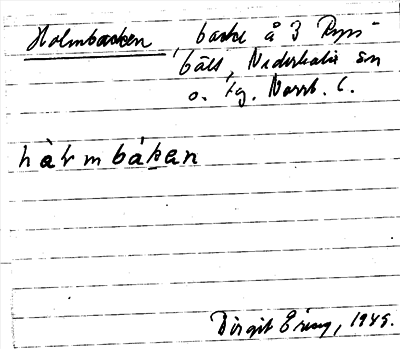 Holmbacken, backe å 3 Rys-
bält, Nederkalix sn
o. tg. Norrb. l.
hàɽmbákan
Birgit Ering, 1945.